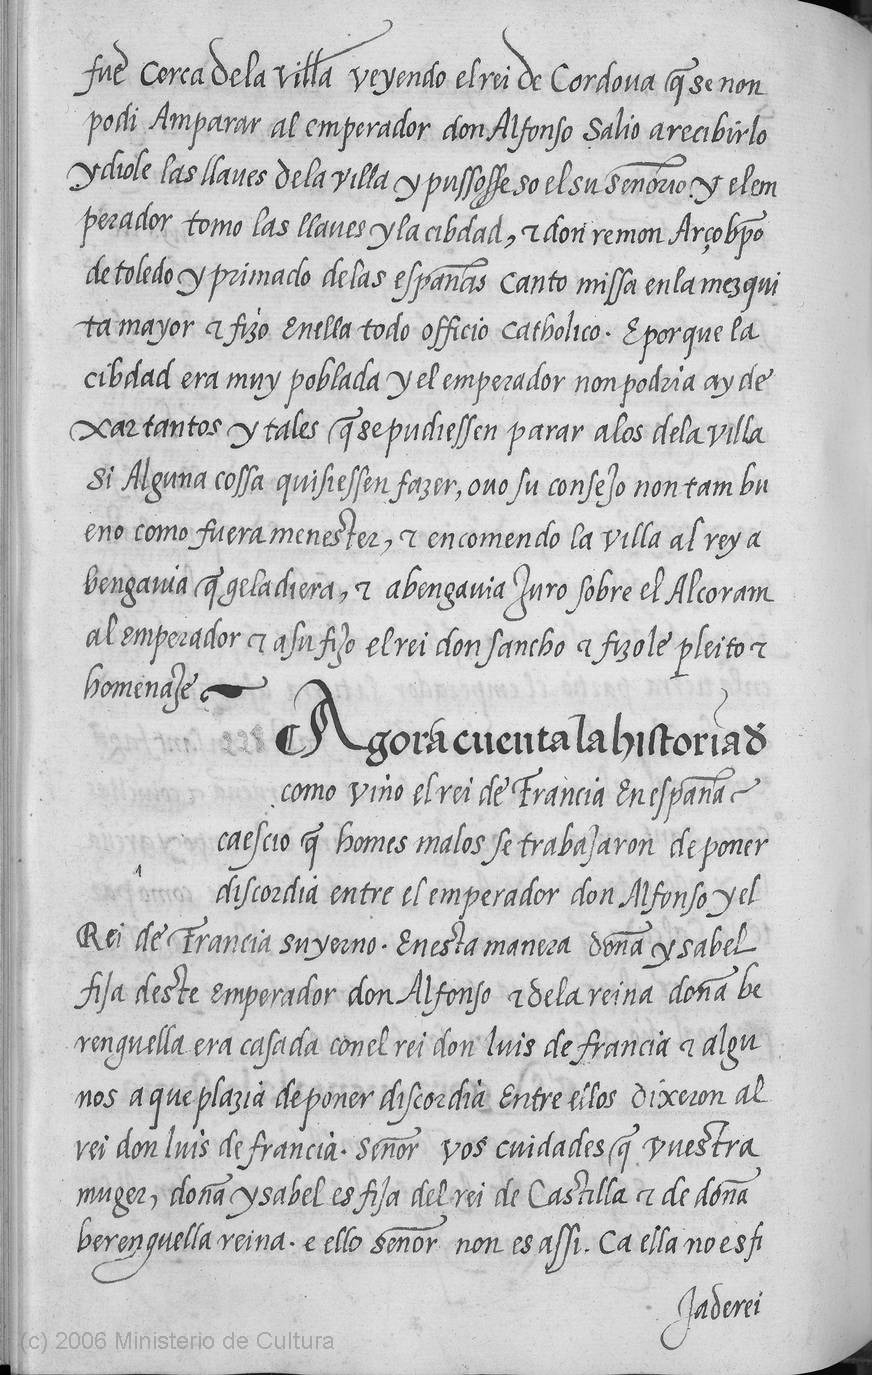 fue cerca de la villa veyendo el rei de Cordoua q̃ se non
podi Amparar al emperador don Alfonso Salio a recibirlo
y diole las llaues de la villa y pussosse so el su señorio y el em
perador tomo las llaues y la cibdad, τ don remon Arçobpo
de toledo y primado de las españas Canto missa en la mezqui
ta mayor τ fizo Enella todo officio catholico. E porque la
cibdad era muy poblada y el emperador non podria ay de
xar tantos y tales q̃ se pudiessen parar a los de la villa
Si Alguna cossa quisiessen fazer, ouo su consejo non tam bu
eno como fuera menester, τ encomendo la villa al rey a
bengauia q̃ gela diera, τ abengauia Juro sobre el Alcoram
al Emperador τ a su fijo el rei don sancho τ fizole pleito τ
homenaje
Agora cuenta la historia d
228
como vino el rei de Francia En españa
caescio q̃ homes malos se trabajaron de poner
discordia entre el emperador don Alfonso y el
Rei de Francia su yerno. En esta manera doña ysabel
fija deste Emperador don Alfonso τ de la reina doña be
renguella era casada con el rei don luis de francia τ algu
nos a que plazia de poner discordia Entre ellos dixeron al
rei don luis de francia. señor vos cuidades q̃ vuestra
muger, doña ysabel es fija del rei de Castilla τ de doña
berenguella reina. e ello señor non es assi. Ca ella no es fi
Ja de rei
(c) 2006 Ministerio de Cultura